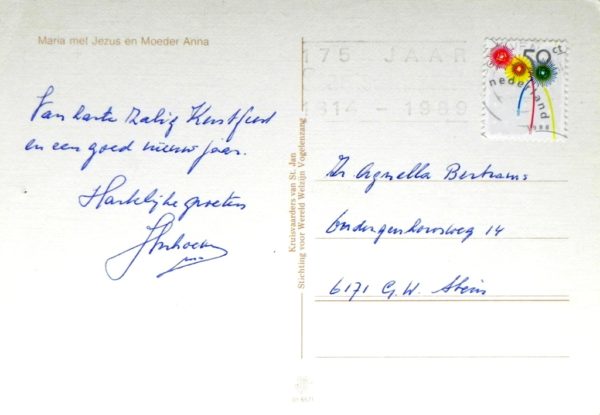 Maria met Jezus en Moeder Anna
175 JAAR
1814 - 1989
50 ct
nederland
1988
Van harte Zalig Kerstfeest
en een goed nieuwjaar.
Hartelijke groeten
Kruisvaarders van St. Jan
Stichting voor Wereld Welzijn Vogelenzang
Zr Agnella Bertrams
14
6171 G.W. Stein